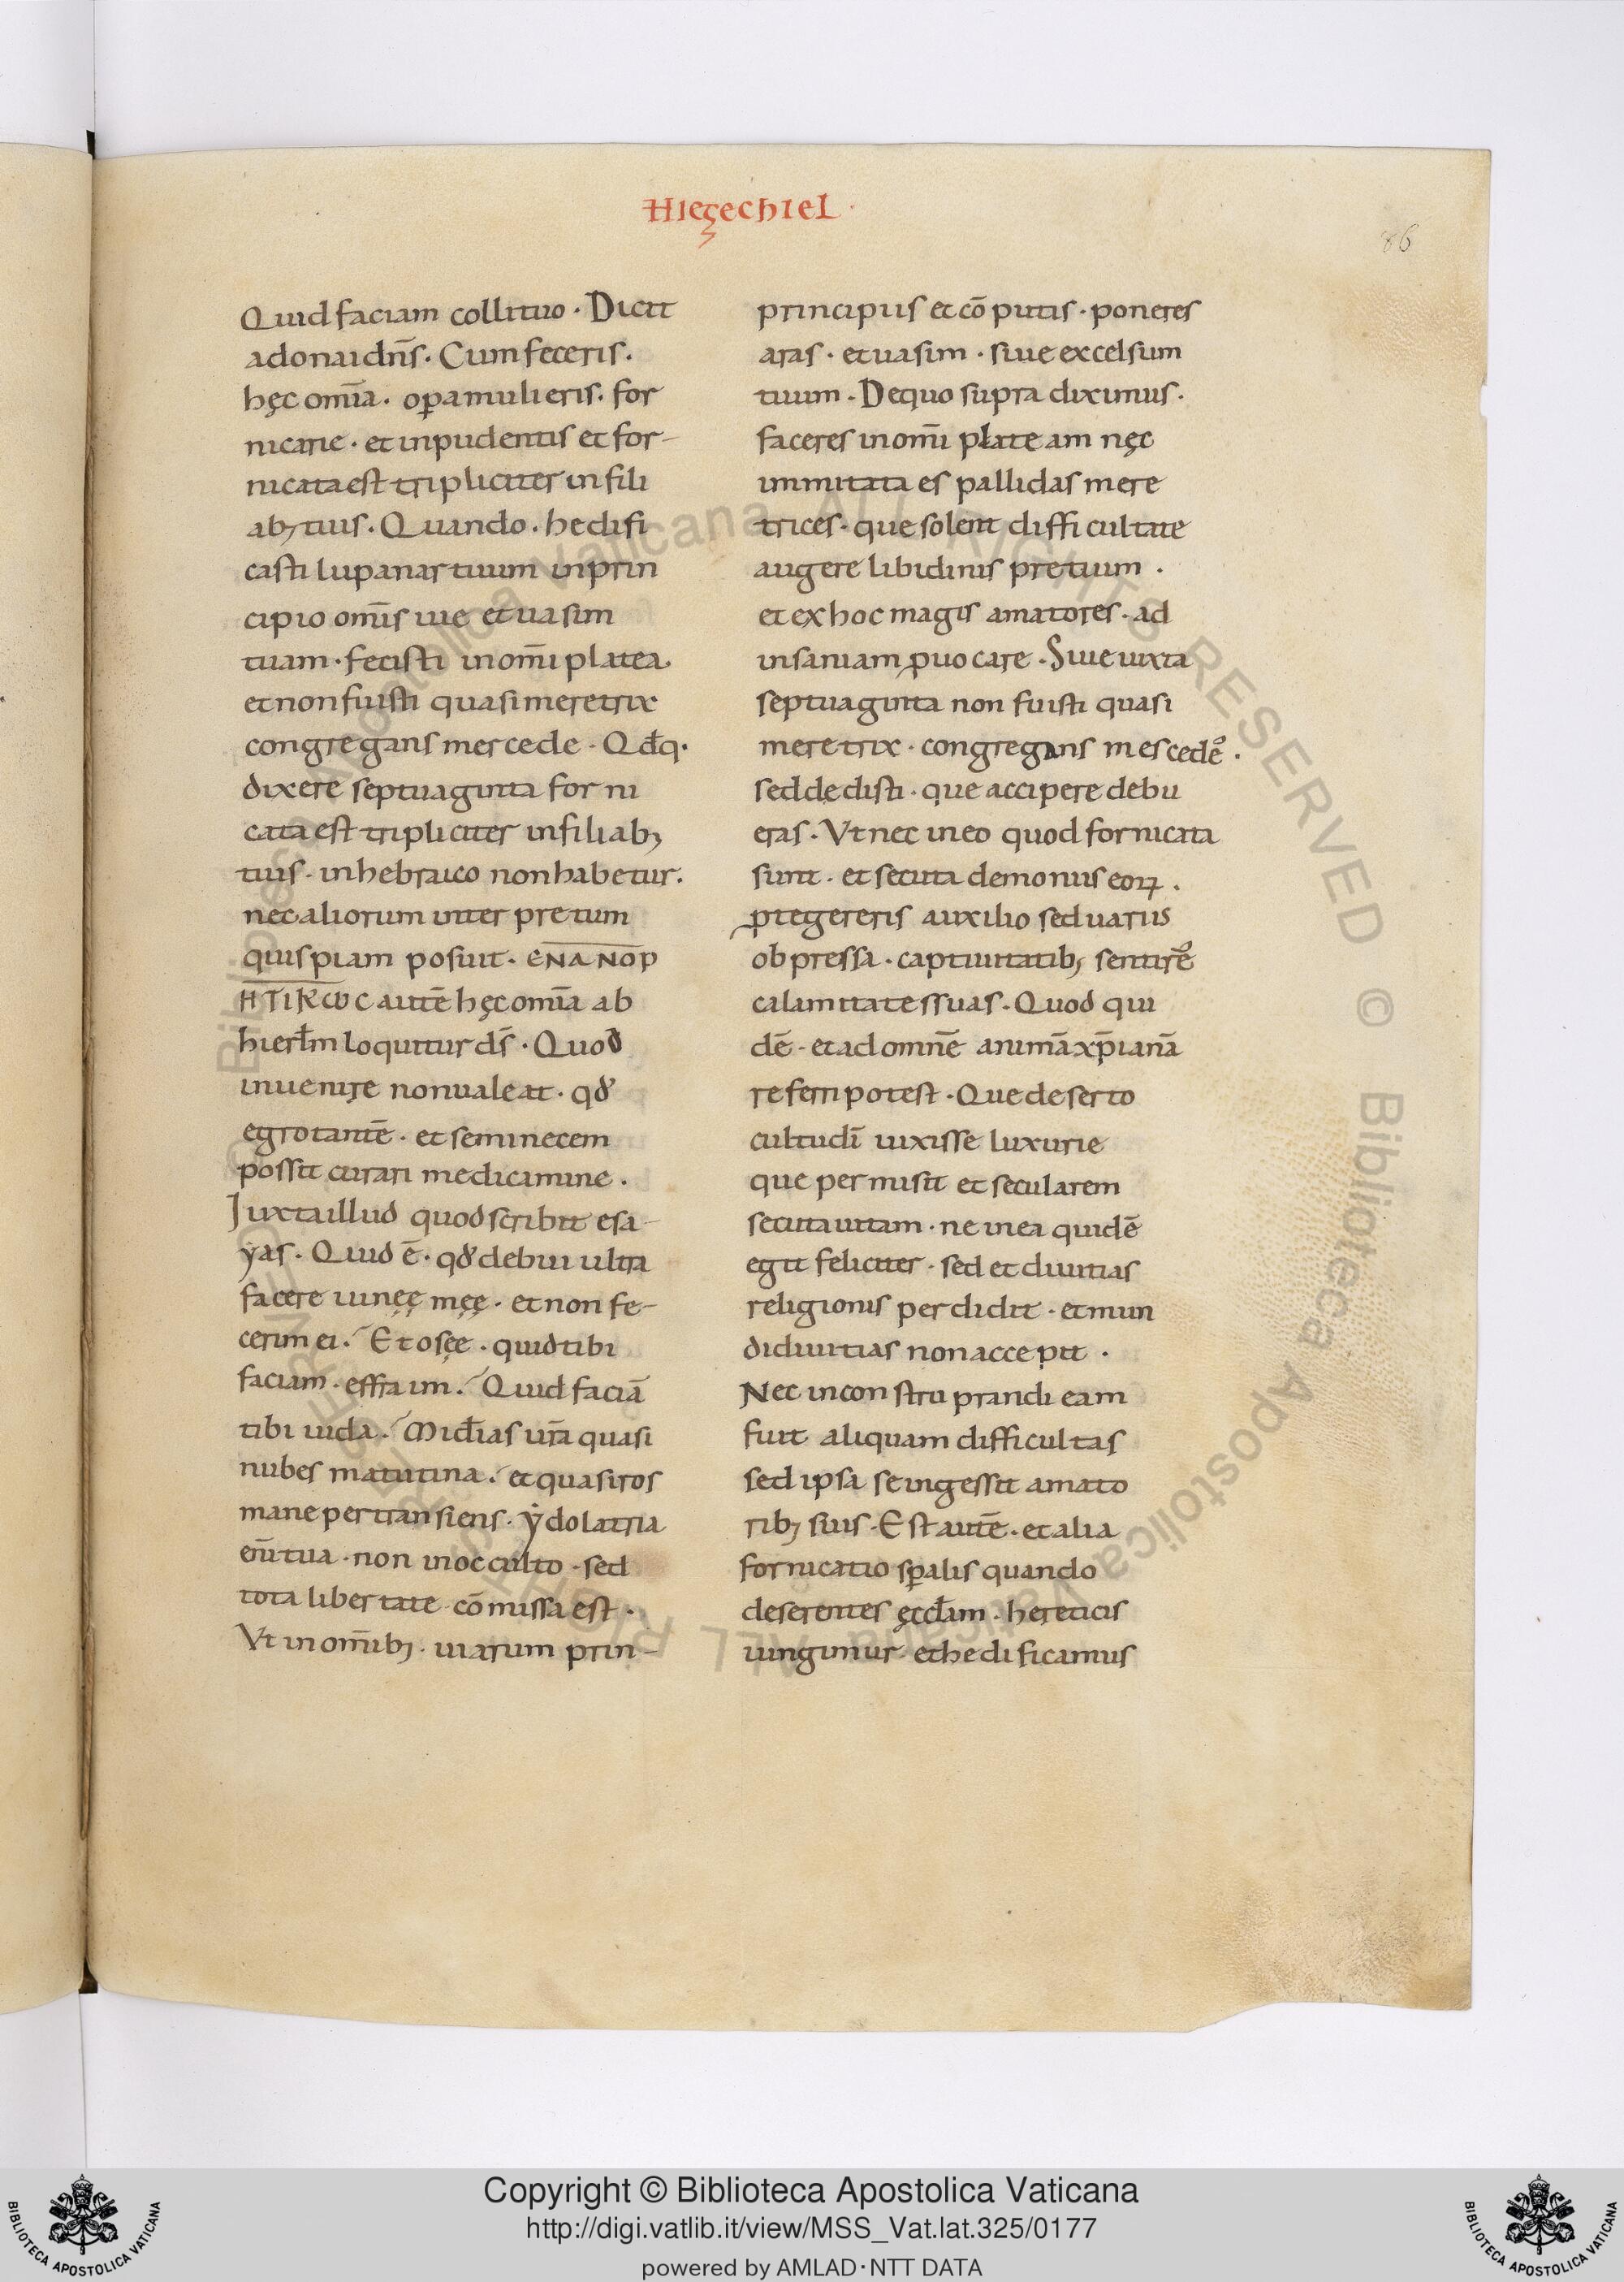 Hiezechiel ·
86
Quid faciam collituo · Dicit
adonaidn̄s · Cum feceris ·
hęc om̄ia · oꝑamulieris · for
nicarie · et inpudentis et for-
nicata est tripliciter in fili
abꝫ tuis · Quando · hedifi
casti lupanar tuum in prin
cipio om̄is uie et uasim
tuam · fecisti in om̄i platea ·
et non fuisti quasi meretrix
congregans mercede · Qđq ·
dixere septuaginta forni
cata est tripliciter in filiabꝫ
tuis · in hebraico non habetur ·
nec aliorum inter pretum
quispiam posuit · ЄNANOP
HTIKωC autē hęc om̄ia ab
hierl̄m loquitur ds̄ · Quod
inuenire non ualeat · qđ
egrotantē · et seminecem
possit curari medicamine ·
Iuxta illud quod scribit esa-
yas · Quid ē · qđ debui ultra
facere uineę męę · et non fe-
cerim ei · Et osęe · quid tibi
faciam · effraim · Quid faciā
tibi iuda · Mid̄ias ur̄a quasi
nubes matutina · et quasi ros
mane pertransiens · ydolatria
eni̅ tua · non in occulto · sed
tota libertate cōmissa est ·
Vt in om̄ibꝫ · uiarum prin-
principiis et cōpitis · poneres
aras · et uasim · siue excelsum
tuum · De quo supra diximus ·
faceres in om̄i plateam nęc
immitata es pallidas mere
trices · que solent difficultate
augere libidinis pretium ·
et ex hoc magis amatores · ad
insaniam ꝓuocare · Siue iuxta
septuaginta non fuisti quasi
meretrix · congregans mescedē ·
sed dedisti · que accipere debu
eras · Vt nec in eo quod fornicata
sunt · et secuta demoniis eoꝝ ·
ꝓtegereris auxilio sed uariis
obpressa · captiuitatibꝫ sentirē
calamitates suas · Quod qui
dē · et ad omnē animā xp̄ianā
referri potest · Que deserto
cultu di̅ uixisse luxurie
que permisit et secularem
secuta uitam · ne in ea quidē
egit feliciter · sed et diuitias
religionis perdidit · et mun
di diuitias non accepit ·
Nec in constru prandi eam
fuit aliquam difficultas
sed ipsa se ingessit amato
ribꝫ suis · Est autē · et alia
fornicatio sp̄alis quando
deserentes ęccl̄im · hereticis
iungimur · et hedificamus
Copyright © Biblioteca Apostolica Vaticana
http://digi.vatlib.it/view/MSS_Vat.lat.325/0177
powered by AMLAD·NTT DATA
BIBLIOTECA APOSTOLICA VATICANA
BIBLIOTECA APOSTOLICA VATICANA